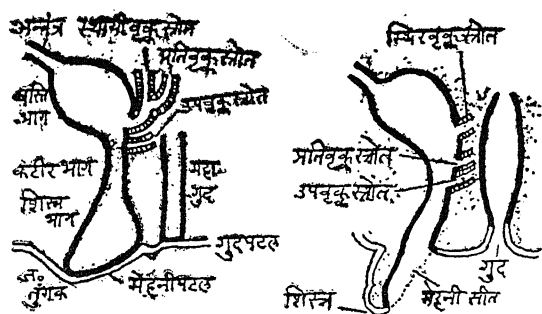 अन्तंत्र स्थायीवृक्कस्त्रोत
प्रतिवृक्कस्त्रोत
उपवृक्कस्त्रोत
वस्ति
भाग
कटीर भाग
शिस्न
भाग
महा
गुद
गुदपटल
ज॰
तुंगक
मेहनीपटल
स्थिरवृक्कस्त्रोत
प्रतिवृक्कस्त्रोत
उपवृक्कस्त्रोत
गुद
शिस्न
मेहनी सीत